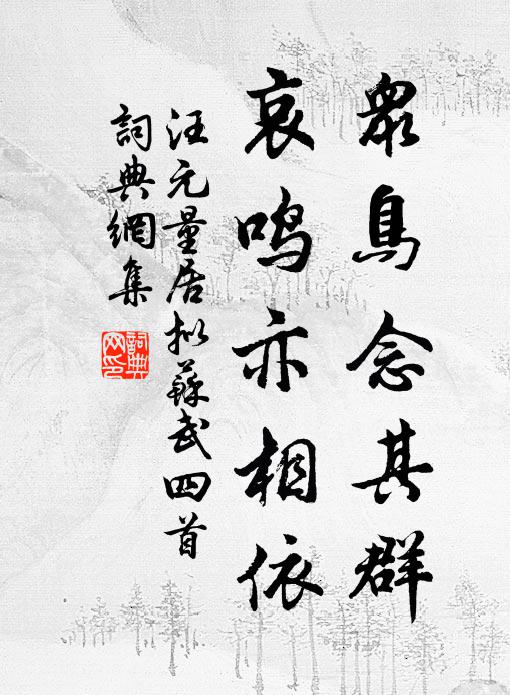 眾鳥念其群
哀鳴亦相依
汪元量居拟蘇武四首
詞典網集
詞典網印